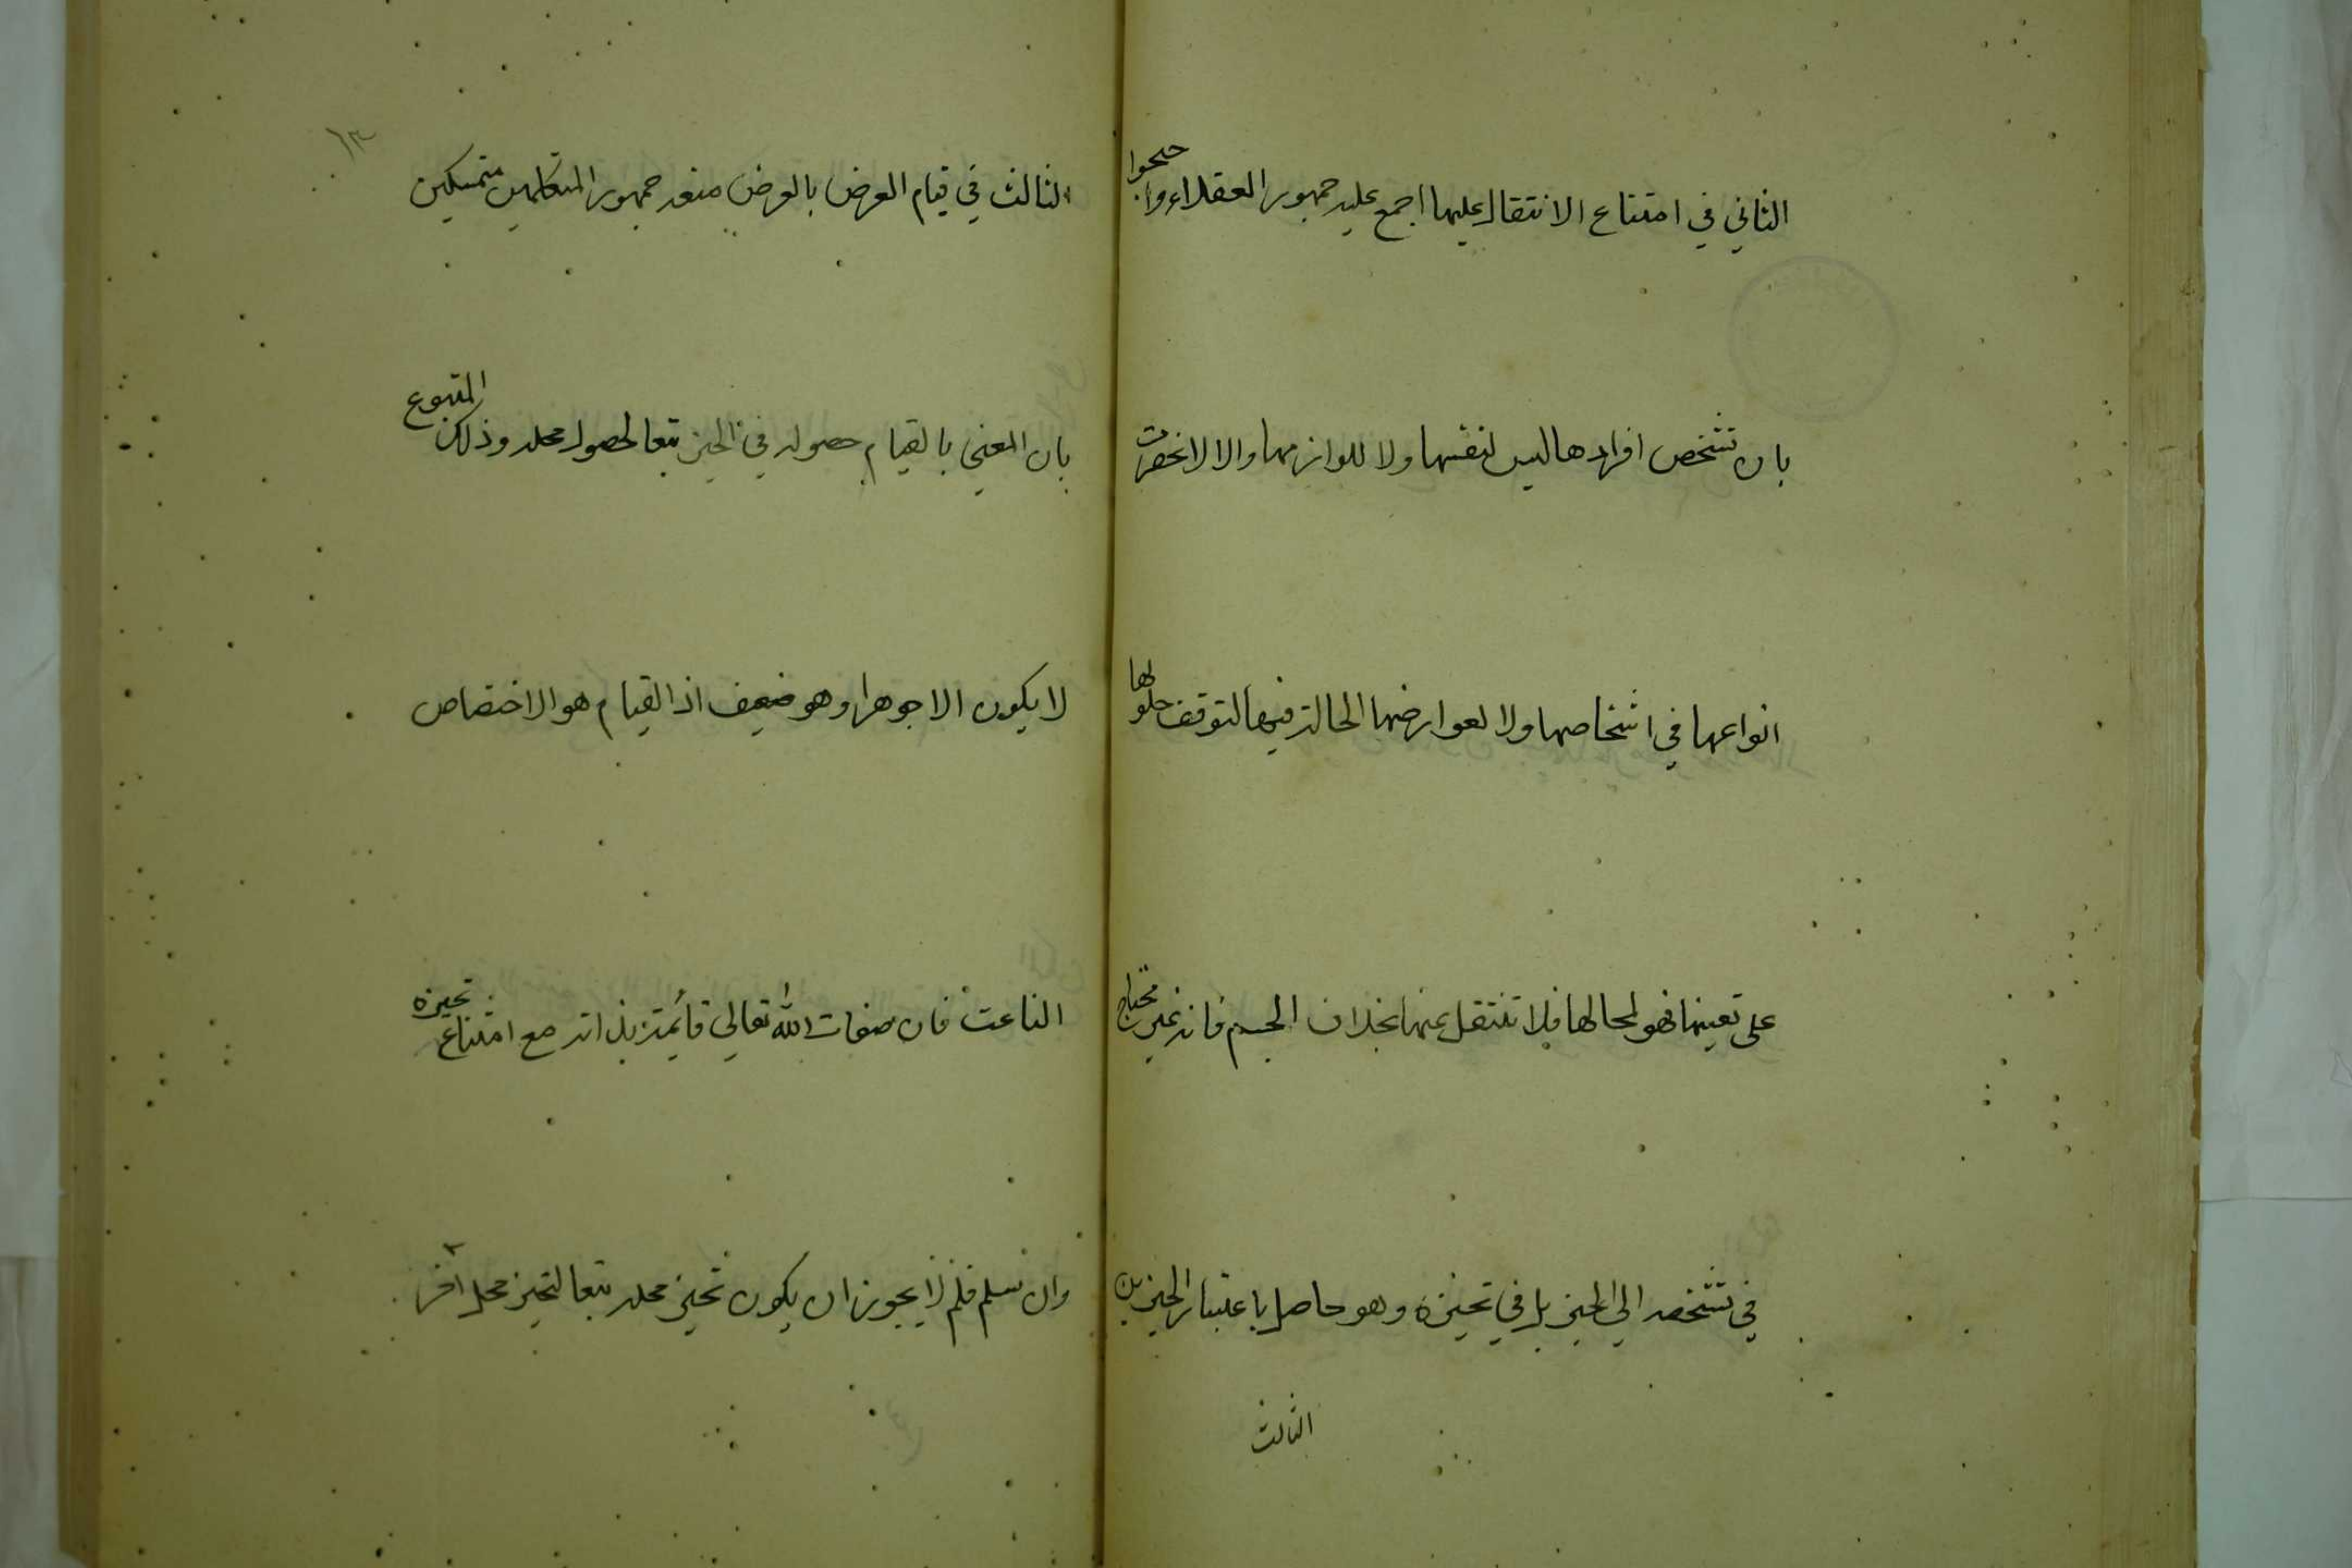 الثاني في امتناع الانتقال عليها اجمع عليه جمهور العقلاء واحتجوا
بان تشخص افرادها ليس لنفسها ولا للوازمها والا لانحصرت
انواعها في اشخاصها ولا لعوارضها الحالة فيها لتوقف حلولها
على تعينها فهو لمحالها فلا تنتقل عنها بخلاف الجسم فانه غير محتاج
في تشخصه الي الحيز بل في تحيزه وهو حاصل باعتبار الحيزين
الثالث
١٣
الثالث في قيام العرض بالعرض منعه جمهور المتكلمين متمسكين
بان المعني بالقيام حصوله في الحيز تبعا لحصول محله وذلك المتبوع
لا يكون الا جوهرا وهو ضعيف اذ القيام هو الاختصاص
الناعت فان صفات الله تعالي قائمة بذاته مع امتناع تحيزه
وان سلم فلم لا يجوز ان يكون تحيز محله تبعا لتحيز محل آخر